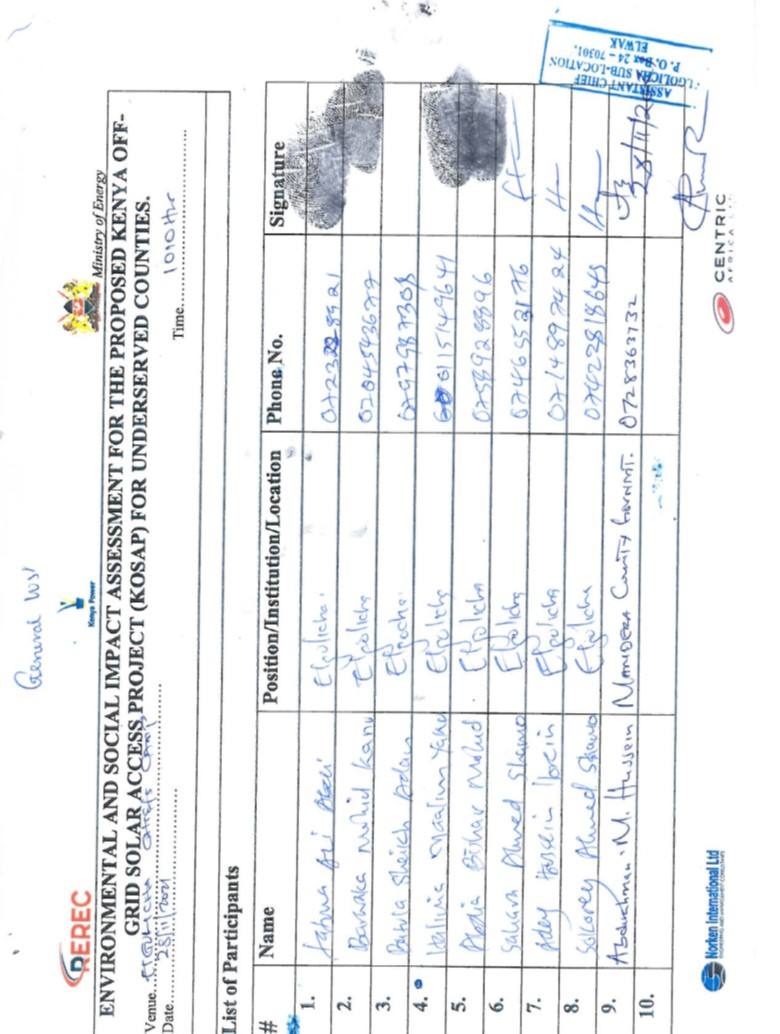 General WS
REREC
Kenya Power
Ministry of Energy
ENVIRONMENTAL AND SOCIAL IMPACT ASSESSMENT FOR THE PROPOSED KENYA OFF-
GRID SOLAR ACCESS PROJECT (KOSAP) FOR UNDERSERVED COUNTIES.
Venue... Elgolicha Chiefs Camp
Date... 28/11/2021 Time... 1010Hr
List of Participants
# Name Position/Institution/Location Phone No. Signature
1. Ali Elgolicha
2. Barwaka Mohid Kanu Elgolicha 0704543677
3. Dahla Sheikh Adan 0797987308
4. Halima Maalim Elgolicha 0115149641
5. Bishar Mohid Elgolicha 0758928896
6. Saharo Ahmed Shamo Elgolicha 0746552176
7. Aday Hussein Ibrein Elgolicha 0714897424
8. Sokorey Ahmed Shamo Elgolicha 0742281864
9. Abdirahman M. Hussein Mandera County Govnmt. 0728363732
10.
28/11/20
ASSISTANT CHIEF
ELGOLICHA SUB-LOCATION
P. O. Box 24 - 70301,
ELWAK
Norken International Ltd
CENTRIC
AFRICA LTD